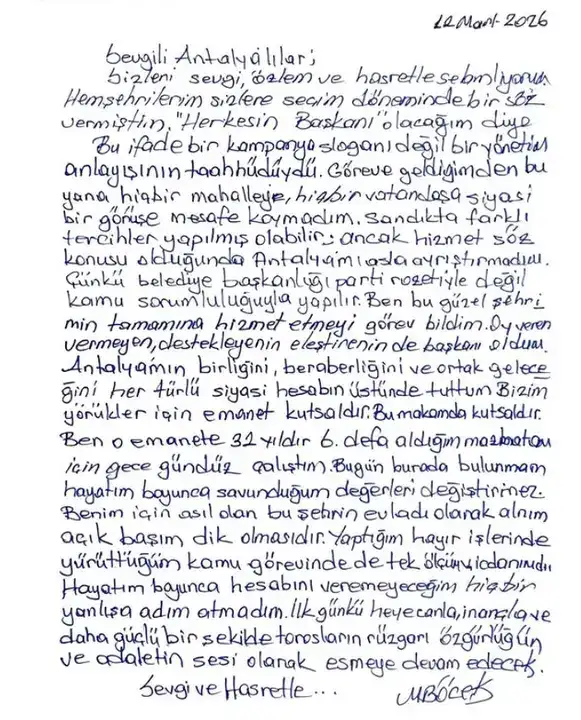 12 Mart 2026
Sevgili Antalyalılar;
bizleri sevgi, özlem ve hasretle selamlıyorum
Hemşehrilerim sizlere seçim döneminde bir söz
vermiştim, "Herkesin Başkanı" olacağım diye
Bu ifade bir kampanya sloganı değil bir yönetim
anlayışının taahhüdüydü. Göreve geldiğimden bu
yana hiçbir mahalleye, hiçbir vatandaşa siyasi
bir görüşe mesafe koymadım. Sandıkta farklı
tercihler yapılmış olabilir; ancak hizmet söz
konusu olduğunda Antalyamı asla ayrıştırmadım.
Çünkü belediye başkanlığı parti rozetiyle değil
kamu sorumluluğuyla yapılır. Ben bu güzel şehri
min tamamına hizmet etmeyi görev bildim. Oy veren
vermeyen, destekleyenin eleştirenin de başkanı oldum.
Antalyamın birliğini, beraberliğini ve ortak gelece
ğini her türlü siyasi hesabın üstünde tuttum Bizim
yörükler için emanet kutsaldır. Bu makamda kutsaldır.
Ben o emanete 32 yıldır 6. defa aldığım mazbatam
için gece gündüz çalıştım. Bugün burada bulunmam
hayatım boyunca savunduğum değerleri değiştirmez.
Benim için asıl olan bu şehrin evladı olarak alnım
açık başım dik olmasıdır. Yaptığım hayır işlerinde
yürüttüğüm kamu görevinde de tek ölçüm vicdanımdı
Hayatım boyunca hesabını veremeyeceğim hiçbir
yanlışa adım atmadım. İlk günkü heyecanla, inançla ve
daha güçlü bir şekilde torosların rüzgarı özgürlüğün
ve adaletin sesi olarak esmeye devam edecek.
Sevgi ve Hasretle...
MBÖCEK